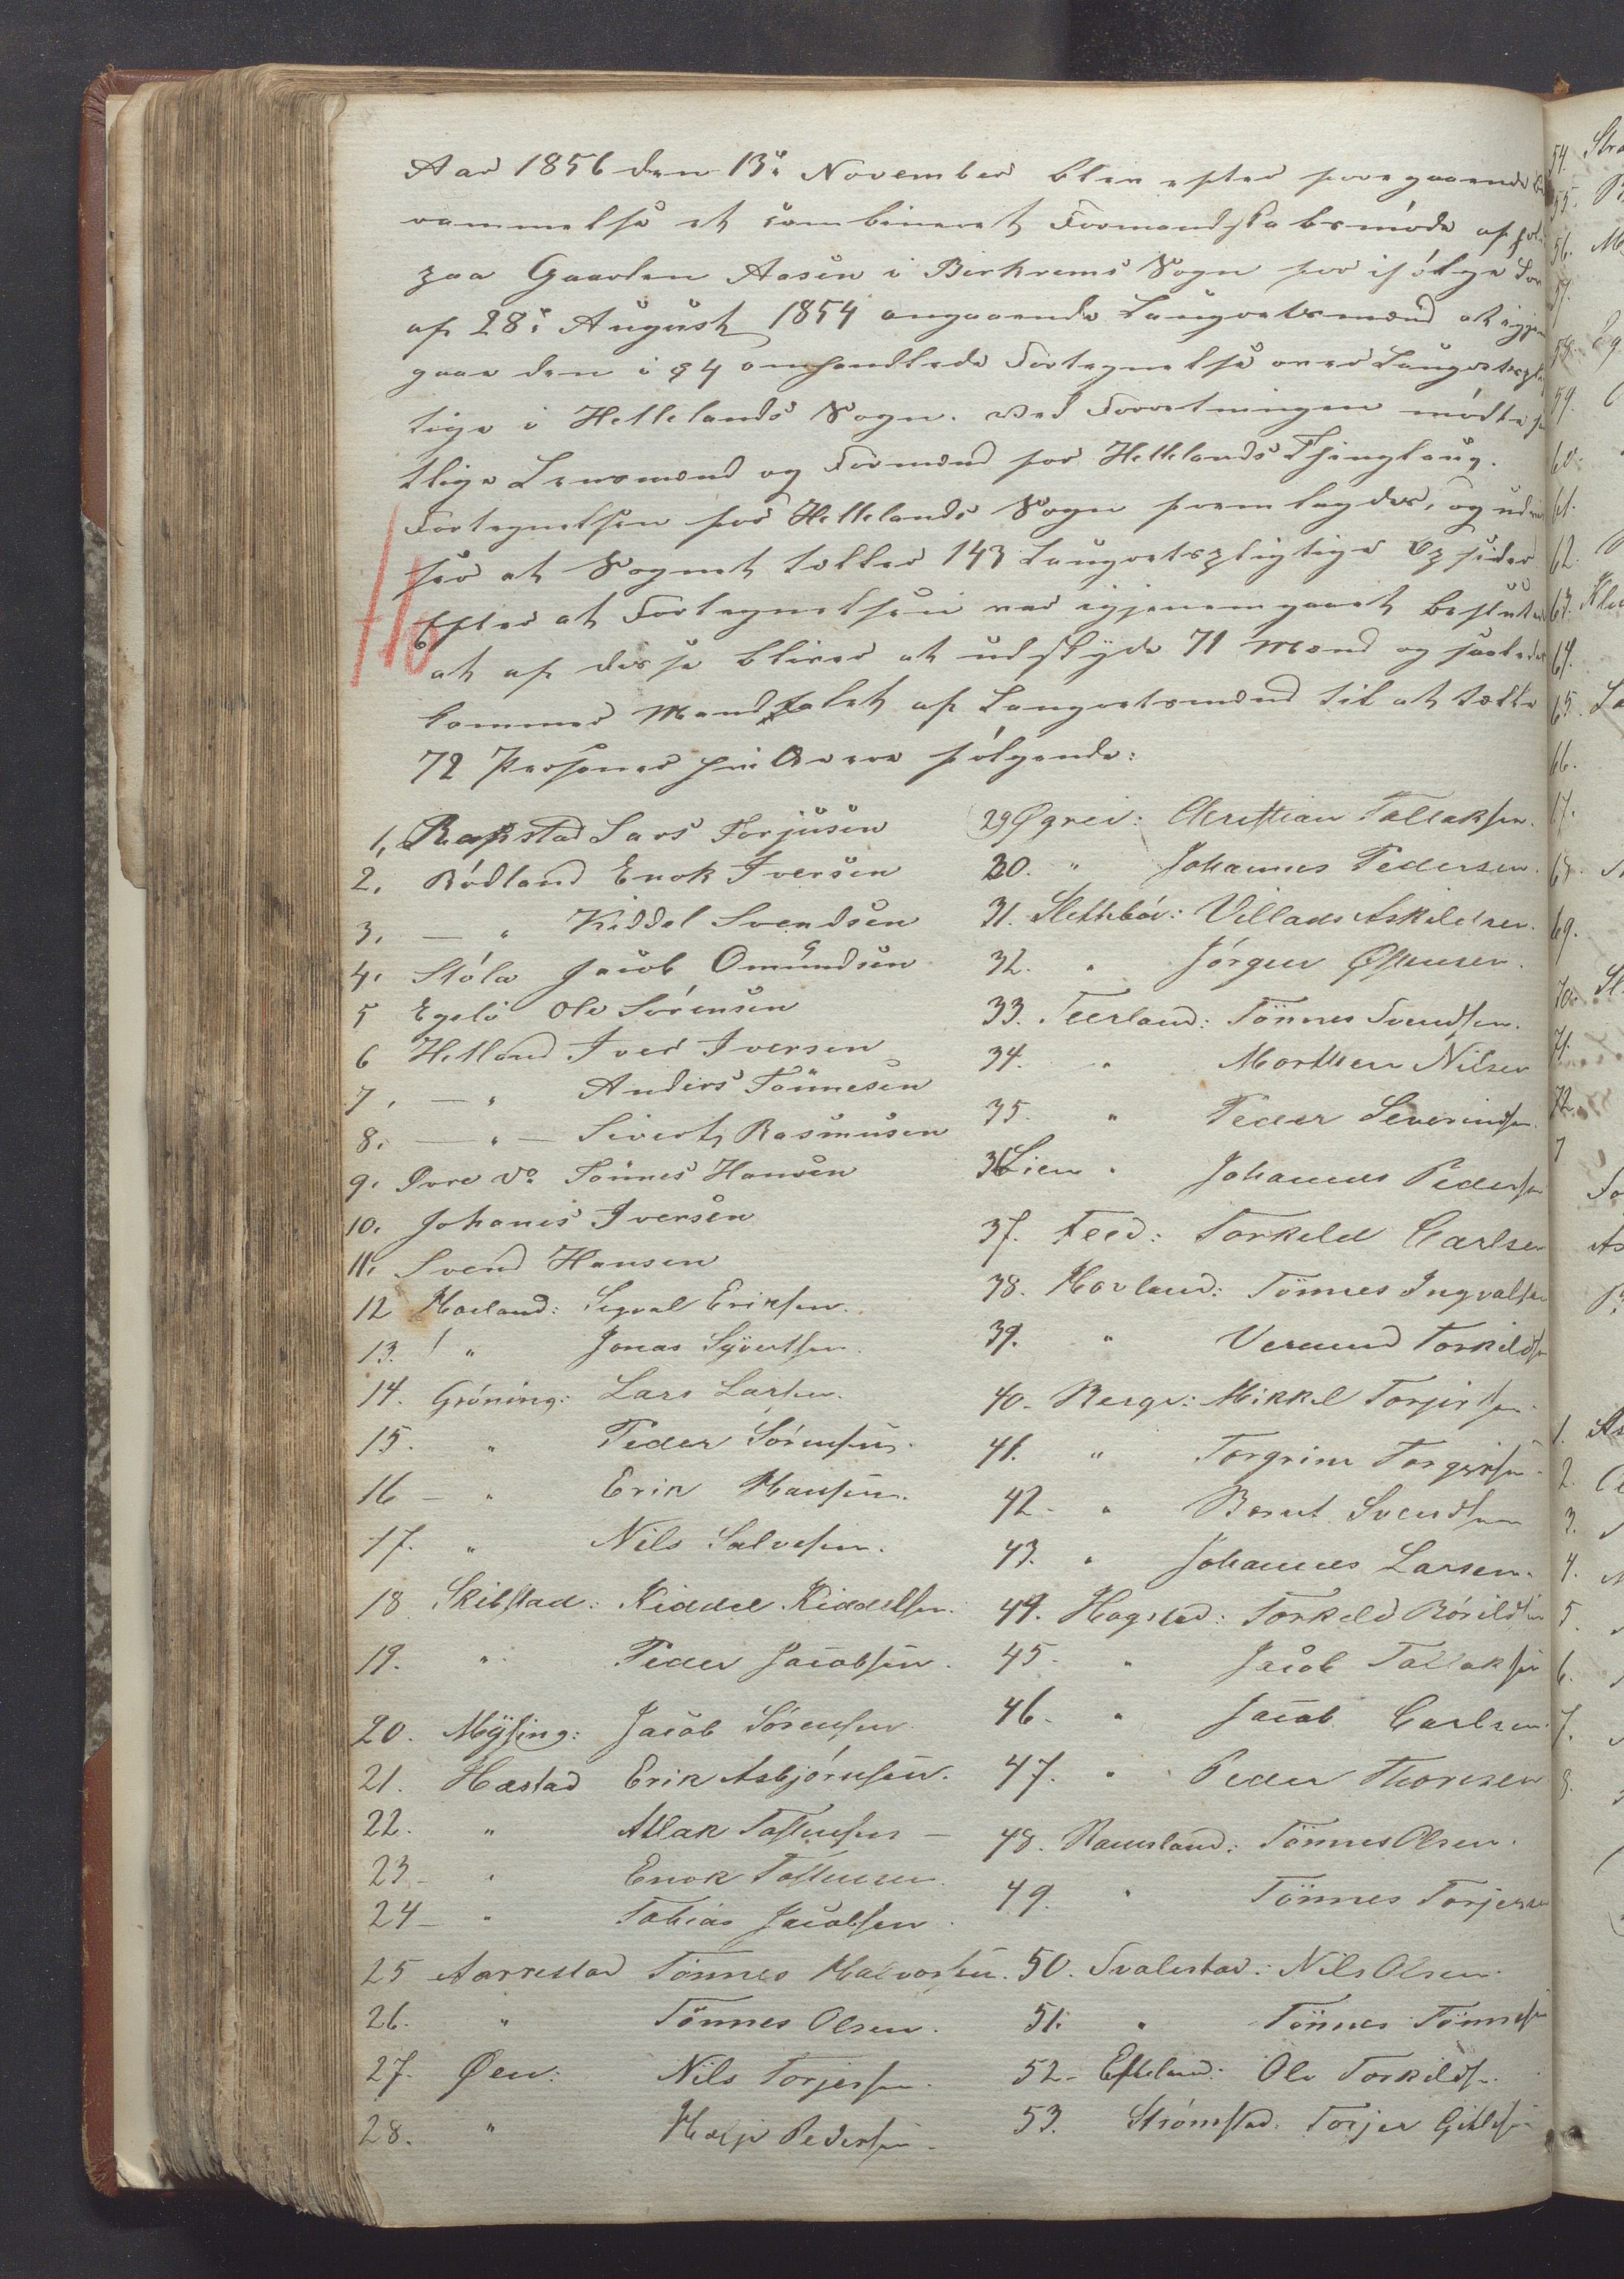 Aar 1856 den 13de November blev efter foregaaende
rammelse et combineret Formandskabsmøde afhol
paa Gaarden Aasen i Birkrems Sogn for ifølge Lov
af 28de August 1854 angaaende Laugretsmænd at igjen
gaae den i § 4 omhandlede Fortegnelse over Laugretsplig
tige i Hellelands Sogn. Ved Forretningen mødte
tlige Lensmænd og Formænd for Hellelands Thinglaug.
Fortegnelsen for Hellelands Sogn fremlagdes, og udvi
ser at Sognet tæller 143 Laugretspligtige Opsidder
Efter at Fortegnelsen var igjenemgaaet besluttes
at af disse bliver at udskyde 71 Mænd og saaledes
kommer Mandtalet af Laugretsmænd til at tælle
72 Personer hvilke ere følgende:
1, Rapstad Lars Torjusen
2, Rødland Enok Iversen
3, — " Kiddel Svendsen
4, Støle Jacob Omundsen
5 Egelie Ole Sørensen
6 Helland Iver Iversen
7, — " Anders Tønnesen
8, — " — Sivert Rasmusen
9, Øvre do Tønnes Hansen
10, Johanes Iversen
11, Svend Hansen
12 Haaland: Sigval Eriksen.
13. " Jonas Syvertsen.
14. Grøning: Lars Larsen.
15. " Peder Sørensen.
16 — " Erik Hansen.
17. " Nils Salvesen.
18 Skibstad: Kiddel Kiddelsen.
19. " Peder Jacobsen.
20. Mysing: Jacob Sørensen
21. Hæstad Erik Asbjørnsen.
22. " Atlak Tostensen —
23 — " Enok Tostensen
24 — " Tobias Jacobsen.
25 Aarrestad Tønnes Halvorsen.
26. " Tønnes Olsen.
27. Øen: Nils Torjersen.
28. " Helje Pedersen.
29 Øgrei: Christian Tallaksen.
30. " Johannes Pedersen.
31. Slettebøe: Villads Askildsen.
32. " Jørgen Østensen.
33. Teerland: Tønnes Svendsen.
34. " Morthen Nilsen
35. " Peder Severindsen.
36 Lien " Johannes Pedersen
37. Feed: Torkeld Carlsen
38. Hovland: Tønnes Ingvalsen
39. " Vermund Torkildsen
40. Berge: Mikkel Torjersen.
41. " Torgrim Torgersen.
42 — " Berent Svendsen
43. " Johannes Larsen.
44. Hogstad: Torkeld Børildsen
45 — " Jacob Tallaksen
46 — " Jacob Carlsen.
47. " Peder Thoresen
48. Ramsland: Tønnes Olsen.
49. " Tønnes Torjersen
50. Svalestad: Nils Olsen.
51. " Tønnes Tønnesen
52 — Efteland: Ole Torkilds.
53. Strømstad. Torjer Gitlesen